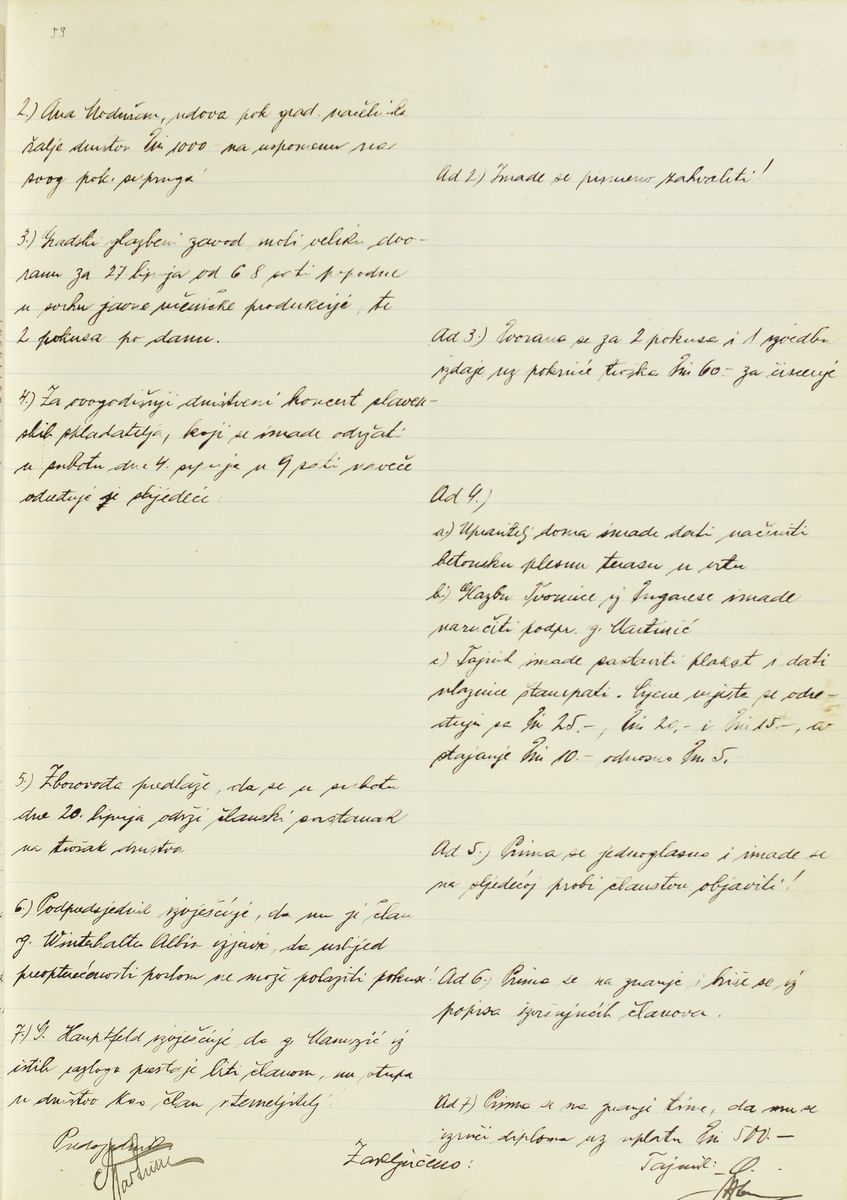 59
2.) Ana Modušan, udova pok grad. načelnika
šalje društvu Din 1000 na uspomenu
svog pok. supruga!
Ad 2.) Imade se pismeno zahvaliti!
3.) Gradski glazbeni zavod moli veliku dvo-
ranu za 27 lipnja od 6 8 sati popodne
u svrhu javne učeničke produkcije, te
2 pokusa po danu.
Ad 3.) Dvorana se za 2 pokusa i 1 izvedbu
izdaje uz pokriće troška Din 60.- za čišćenje
4.) Za ovogodišnji društveni koncert slaven-
skih skladatelja, koji se imade održati
u subotu dne 4. srpnja u 9 sati naveče
određuje se slijedeće:
Ad 4.)
a) Upravitelj doma imade dati načiniti
betonsku plesnu terasu u vrtu
b.) Glazbu Tvornice iz imade
naručiti podpr. g. Martinić
c) Tajnik imade sastaviti plakat i dati
ulaznice štampati. Cijene mjesta se odre-
đuju sa Din 25.-, Din 20,- i Din 15.-, a
stajanje Din 10.- odnosno Din 5.
5.) Zborovođa predlaže, da se u subotu
dne 20. lipnja održi članski sastanak
na trošak društva
Ad 5.) Prima se jednoglasno i imade se
na sljedećoj probi članstvu objaviti!
6.) Podpredsjednik izvješćuje, da mu je član
g. Winterhalter Albin izjavio, da uslijed
preopterećenosti poslom ne može polaziti pokuse!
Ad 6.) Prima se na znanje i briše se iz
popisa izvršujućih članova.
7.) G. Hauptfeld izvješćuje da g. Mamuzić iz
istih razloga prestaje biti članom, nu stupa
u društvo kao član utemeljitelj!
Ad 7.) Prima se na znanje time, da mu se
izruči diploma uz uplatu Din 500.-
Predsjednik
Zaključeno:
Tajnik: